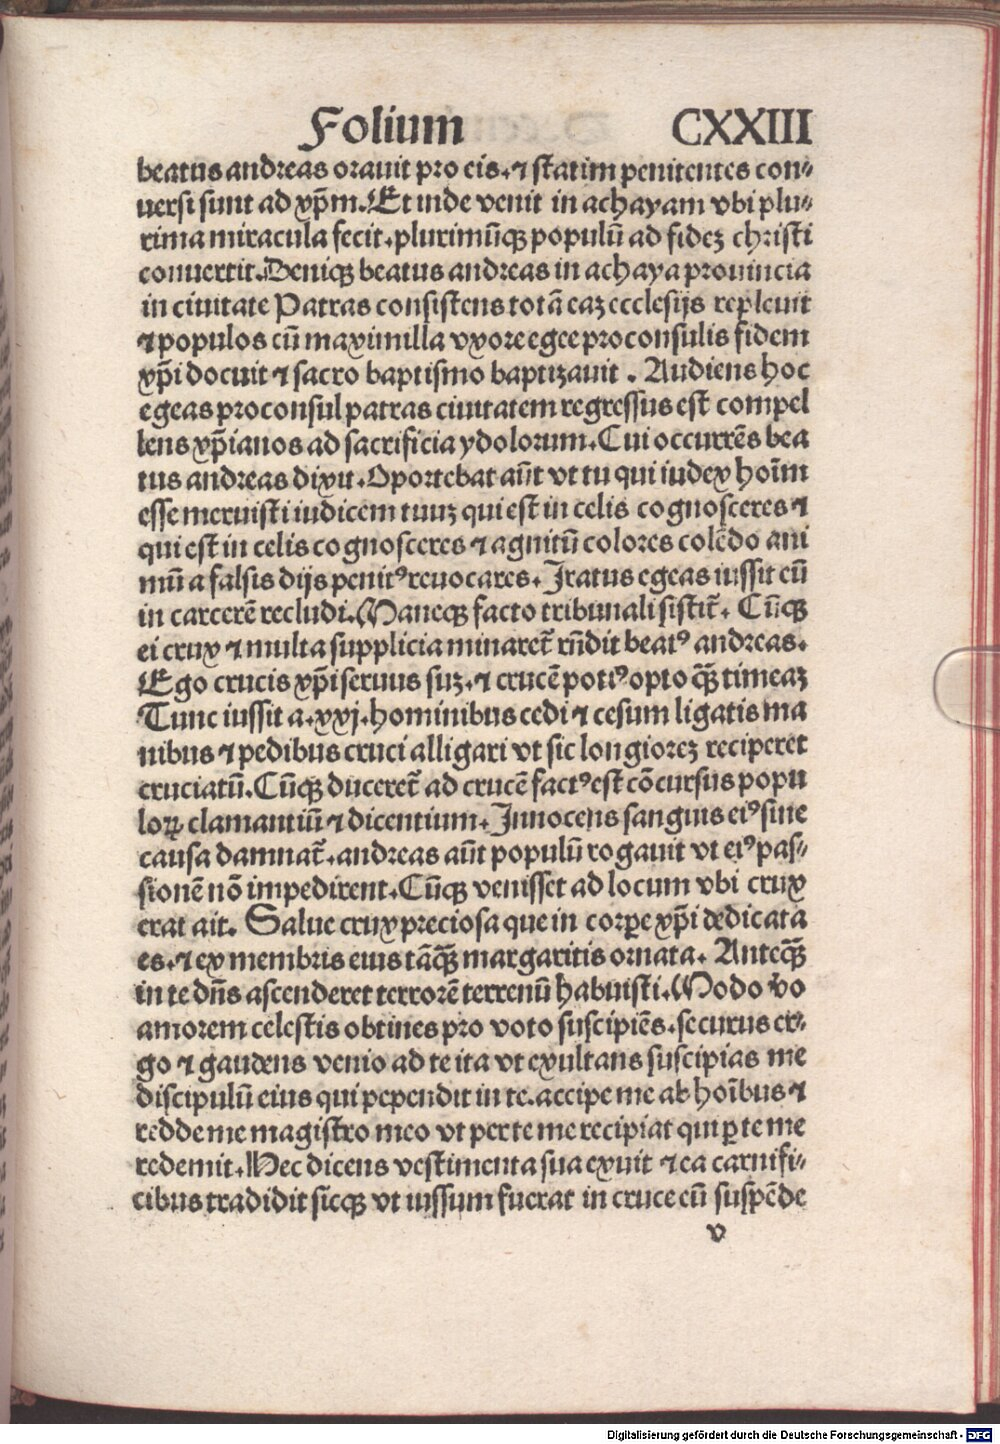 Folium CXXIII
beatus andreas orauit pro eis.⁊ statim penitentes con⸗
uersi sunt ad xp̄m.Et inde venit in achayam vbi plu⸗
rima miracula fecit.plurimūqꝫ populū ad fideꝫ christi
conuertit.Deniqꝫ beatus andreas in achaya prouincia
in ciuitate Patras consistens totā eaꝫ ecclesijs repleuit
⁊ populos cū maximilla vxore egee proconsulis fidem
xp̄i docuit ⁊ sacro baptismo baptizauit . Audiens hoc
egeas proconsul patras ciuitatem regressus est compel
lens xp̄ianos ad sacrificia ydolorum.Cui occurrēs bea
tus andreas dixit.Oportebat aūt vt tu qui iudex hoīm
esse meruisti iudicem tuuꝫ qui est in celis cognosceres ⁊
qui est in celis cognosceres ⁊ agnitū colores colēdo ani
mū a falsis dijs penitꝰ reuocares. Iratus egeas iussit eū
in carcerē recludi.Maneqꝫ facto tribunali sistit̄. Cūqꝫ
ei crux ⁊ multa supplicia minaret̄ rn̄dit beatꝰ andreas.
Ego crucis xp̄i seruus suꝫ.⁊ crucē potiꝰ opto qꝫ̄ timeaꝫ
Tunc iussit a.xxj.hominibus cedi ⁊ cesum ligatis ma
nibus ⁊ pedibus cruci alligari vt sic longioreꝫ reciperet
cruciatū.Cūqꝫ duceret̄ ad crucē factꝰ est cōcursus popu
loꝝ clamantiū ⁊ dicentium.Innocens sanguis eiꝰ sine
causa damnat̄.andreas aūt populū rogauit vt eiꝰ pas⸗
sionē nō impedirent.Cūqꝫ venisset ad locum vbi crux
erat ait. Salue crux preciosa que in corꝑe xp̄i dedicata
es.⁊ ex membris eius tāqꝫ̄ margaritis ornata. Anteqꝫ̄
in te dn̄s ascenderet terrorē terrenū habuisti.Modo vo
amorem celestis obtines pro voto suscipiēs.securus er⸗
go ⁊ gaudens venio ad te ita vt exultans suscipias me
discipulū eius qui pependit in te.accipe me ab hoībus ⁊
redde me magistro meo vt per te me recipiat qui ꝑ te me
redemit.Hec dicens vestimenta sua exuit ⁊ ea carnifi⸗
cibus tradidit sicqꝫ vt iussum fuerat in cruce eū suspēde
v
Digitalisierung gefördert durch die Deutsche Forschungsgemeinschaft - DFG